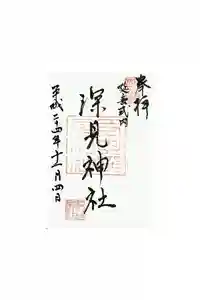 奉拝
延喜式内
深見神社
平成二十四年十二月四日